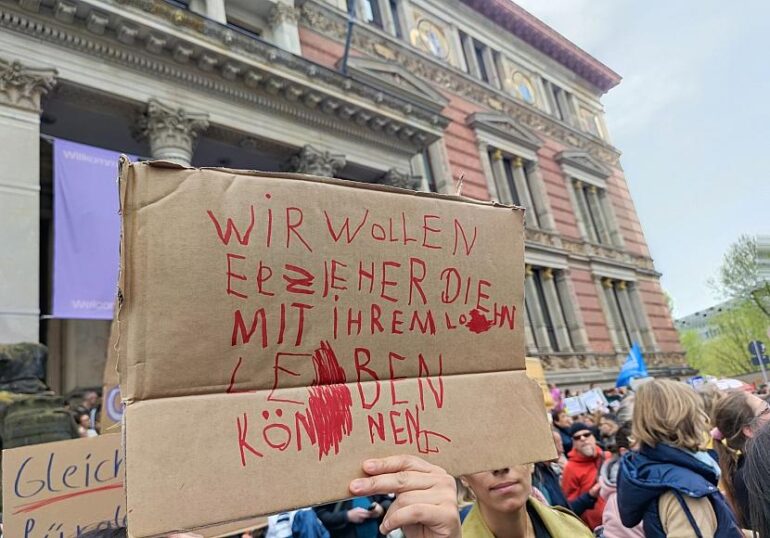 Willkomm
WIR WOLLEN
ERZIEHER DIE
MIT IHREM LOHN
LEBEN
KÖNNEN
Gleich
für